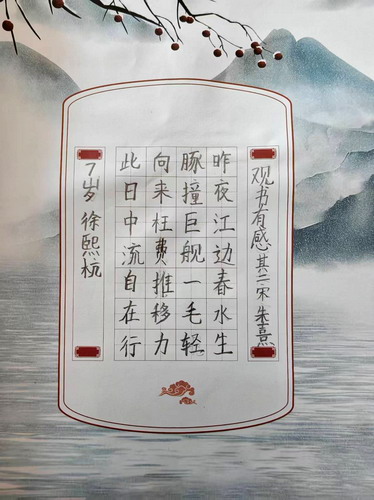 观书有感 其二 宋 朱熹
昨夜江边春水生
豚撞巨舰一毛轻
向来枉费推移力
此日中流自在行
7岁 徐熙杭